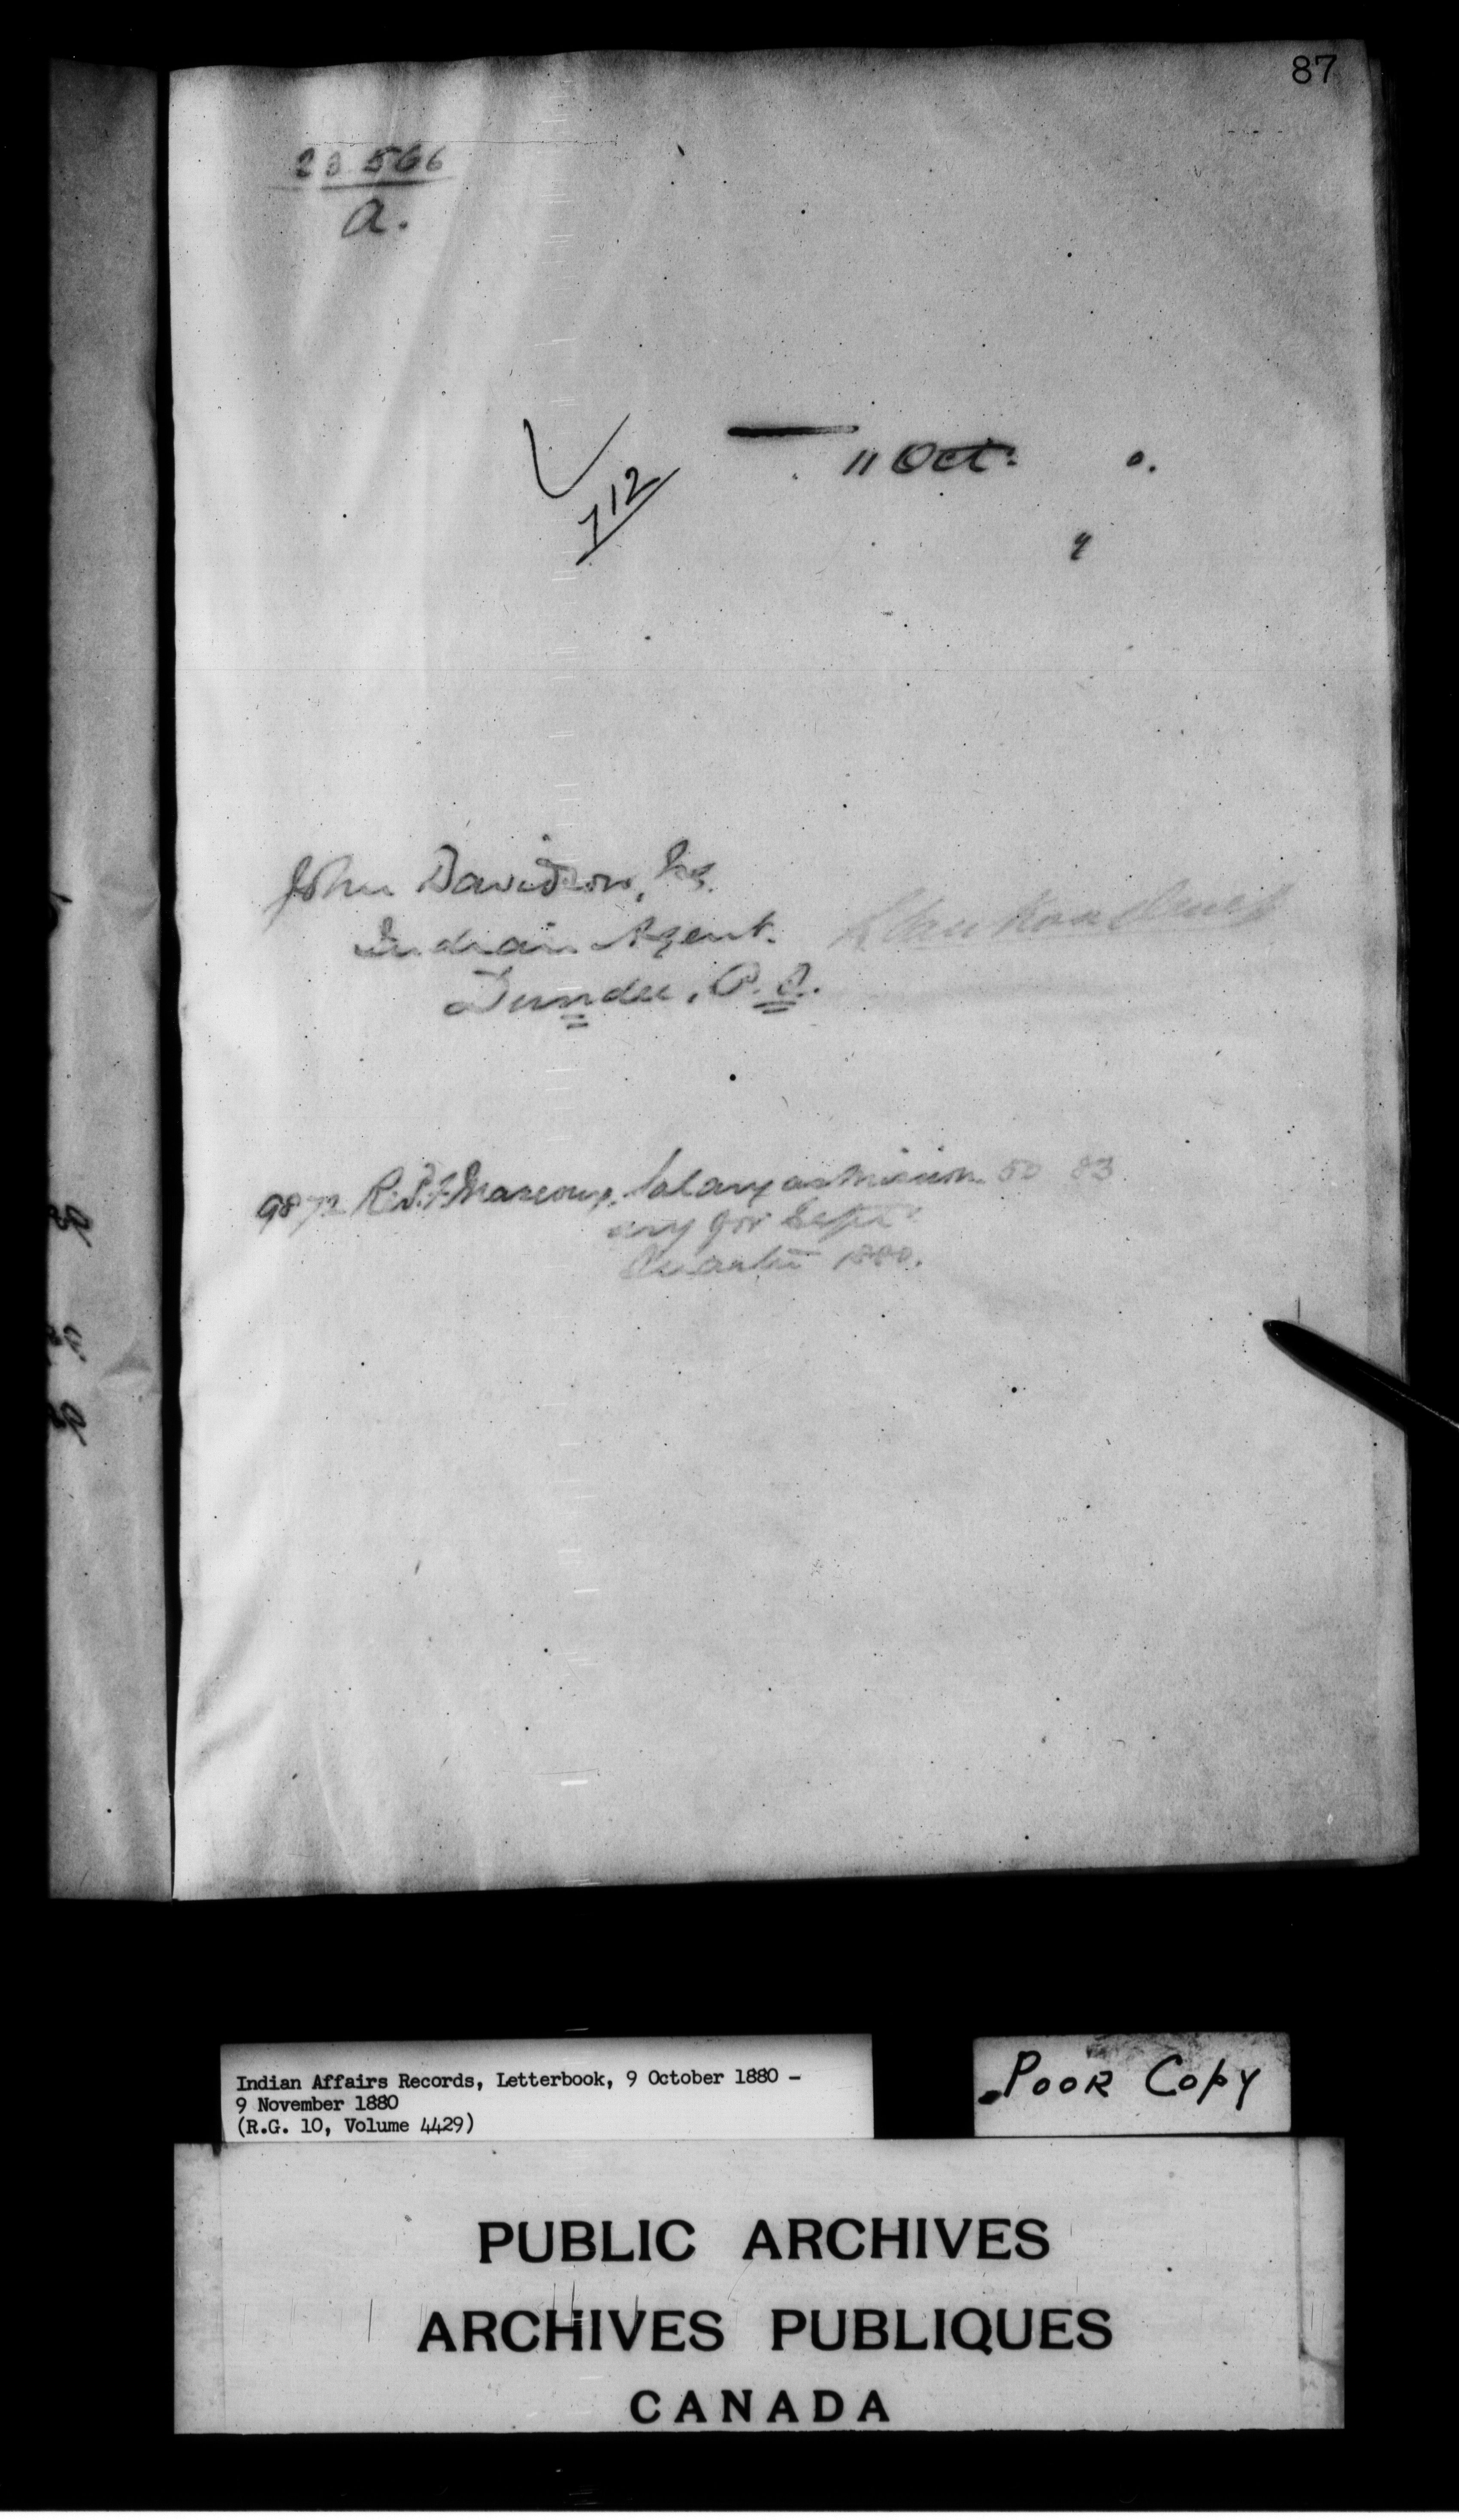 87
23566
a.
11 Oct. 0.
712
John Davidson, Esq.
Indian Agent.
Dundee, P.Q.
9872 Salary as Mission 50 83
ary for Sept
Quarter 1880.
Indian Affairs Records, Letterbook, 9 October 1880 –
9 November 1880
(R.G. 10, Volume 4429)
Poor Copy
PUBLIC ARCHIVES
ARCHIVES PUBLIQUES
CANADA